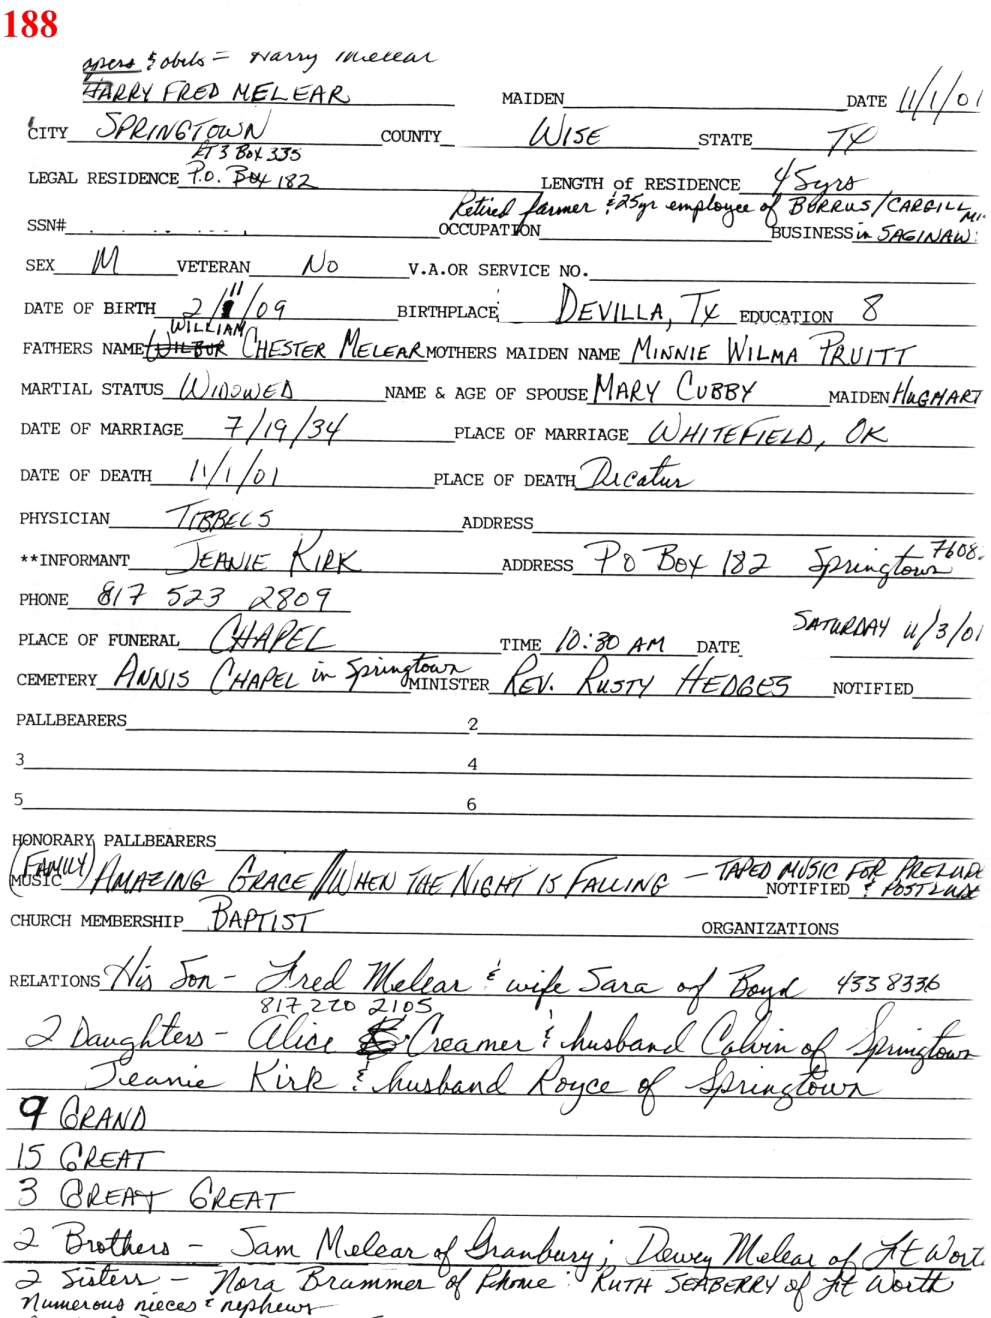 188
& obits = Harry Melear
HARRY FRED MELEAR MAIDEN DATE 11/1/01
CITY SPRINGTOWN COUNTY WISE STATE TX
RT 3 Box 335
LEGAL RESIDENCE P.O. Box 182 LENGTH of RESIDENCE 45yrs
Retired farmer & 25yr employee of BURRUS/CARGILL
SSN# OCCUPATION BUSINESS in SAGINAW
SEX M VETERAN No V.A.OR SERVICE NO.
DATE OF BIRTH 2/11/09 BIRTHPLACE DEVILLA, TX EDUCATION 8
WILLIAM
FATHERS NAME WILBUR CHESTER MELEAR MOTHERS MAIDEN NAME MINNIE WILMA PRUITT
MARTIAL STATUS WIDOWED NAME & AGE OF SPOUSE MARY CUBBY MAIDEN HUGHART
DATE OF MARRIAGE 7/19/34 PLACE OF MARRIAGE WHITEFIELD, OK
DATE OF DEATH 11/1/01 PLACE OF DEATH Decatur
PHYSICIAN TIBBELS ADDRESS
**INFORMANT JEANIE KIRK ADDRESS PO Box 182 Springtown 7608
PHONE 817 523 2809
PLACE OF FUNERAL CHAPEL TIME 10:30 AM DATE SATURDAY 11/3/01
CEMETERY ANNIS CHAPEL in Springtown MINISTER REV. RUSTY HEDGES NOTIFIED
PALLBEARERS 2
3 4
5 6
HONORARY PALLBEARERS
(FAMILY)
MUSIC AMAZING GRACE // WHEN THE NIGHT IS FALLING - TAPED MUSIC FOR PRELUDE
NOTIFIED & POSTLUDE
CHURCH MEMBERSHIP BAPTIST ORGANIZATIONS
RELATIONS His Son - Fred Melear & wife Sara of Boyd 433 8336
817 220 2105
2 Daughters - Alice Creamer & husband Calvin of Springtown
Jeanie Kirk & husband Royce of Springtown
9 GRAND
15 GREAT
3 GREAT GREAT
2 Brothers - Sam Melear of Granbury; Dewey Melear of Ft Wort
2 Sisters - Nora Brammer of Rhome: RUTH SEABERRY of Ft Worth
Numerous nieces & nephews